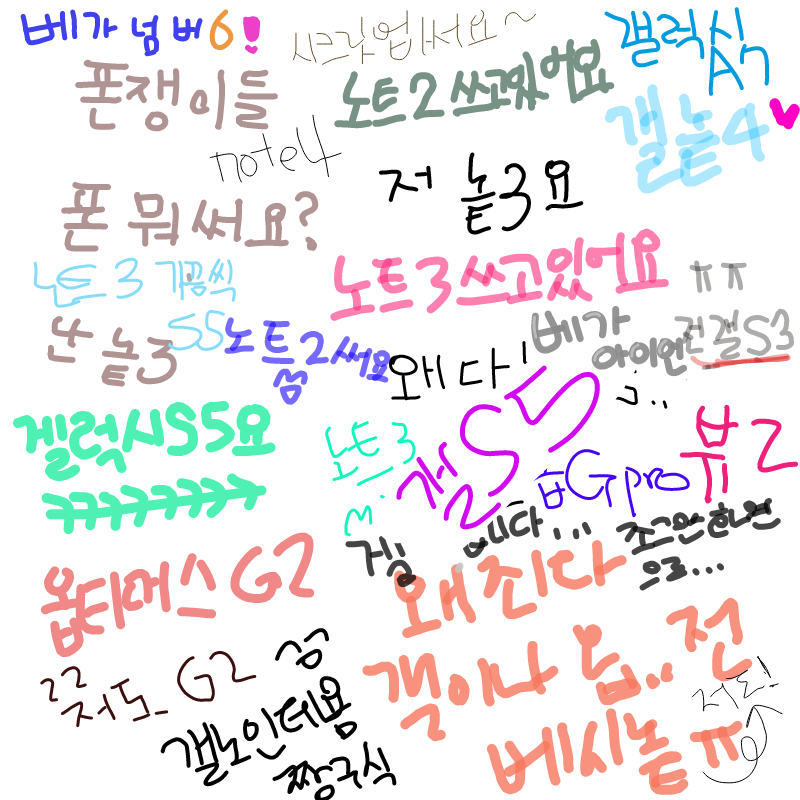 베가 넘버6!
시크릿업써서요~
갤럭식
A7
폰쟁이들
노트2 쓰고있어요
갤놑4♥
note4
저 놑3요
폰 뭐써요?
노트3 가끔씩
노트3쓰고있어요
ㅠㅠ
난 놑3
S5
노트2써요
베가
아이언
전갤S3
왜 다!
갤럭시S5요
ㅋㅋㅋㅋㅋㅋㅋ
노트3
갤S5
뷰2
Gpro
입니다...
조그만화면
으로...
옵티머스G2
왜죄다
갤이나 옵.. 전
ㄹㄹ저도 G2
갤노인데용
짱구식
베시놑ㅠ
저도!